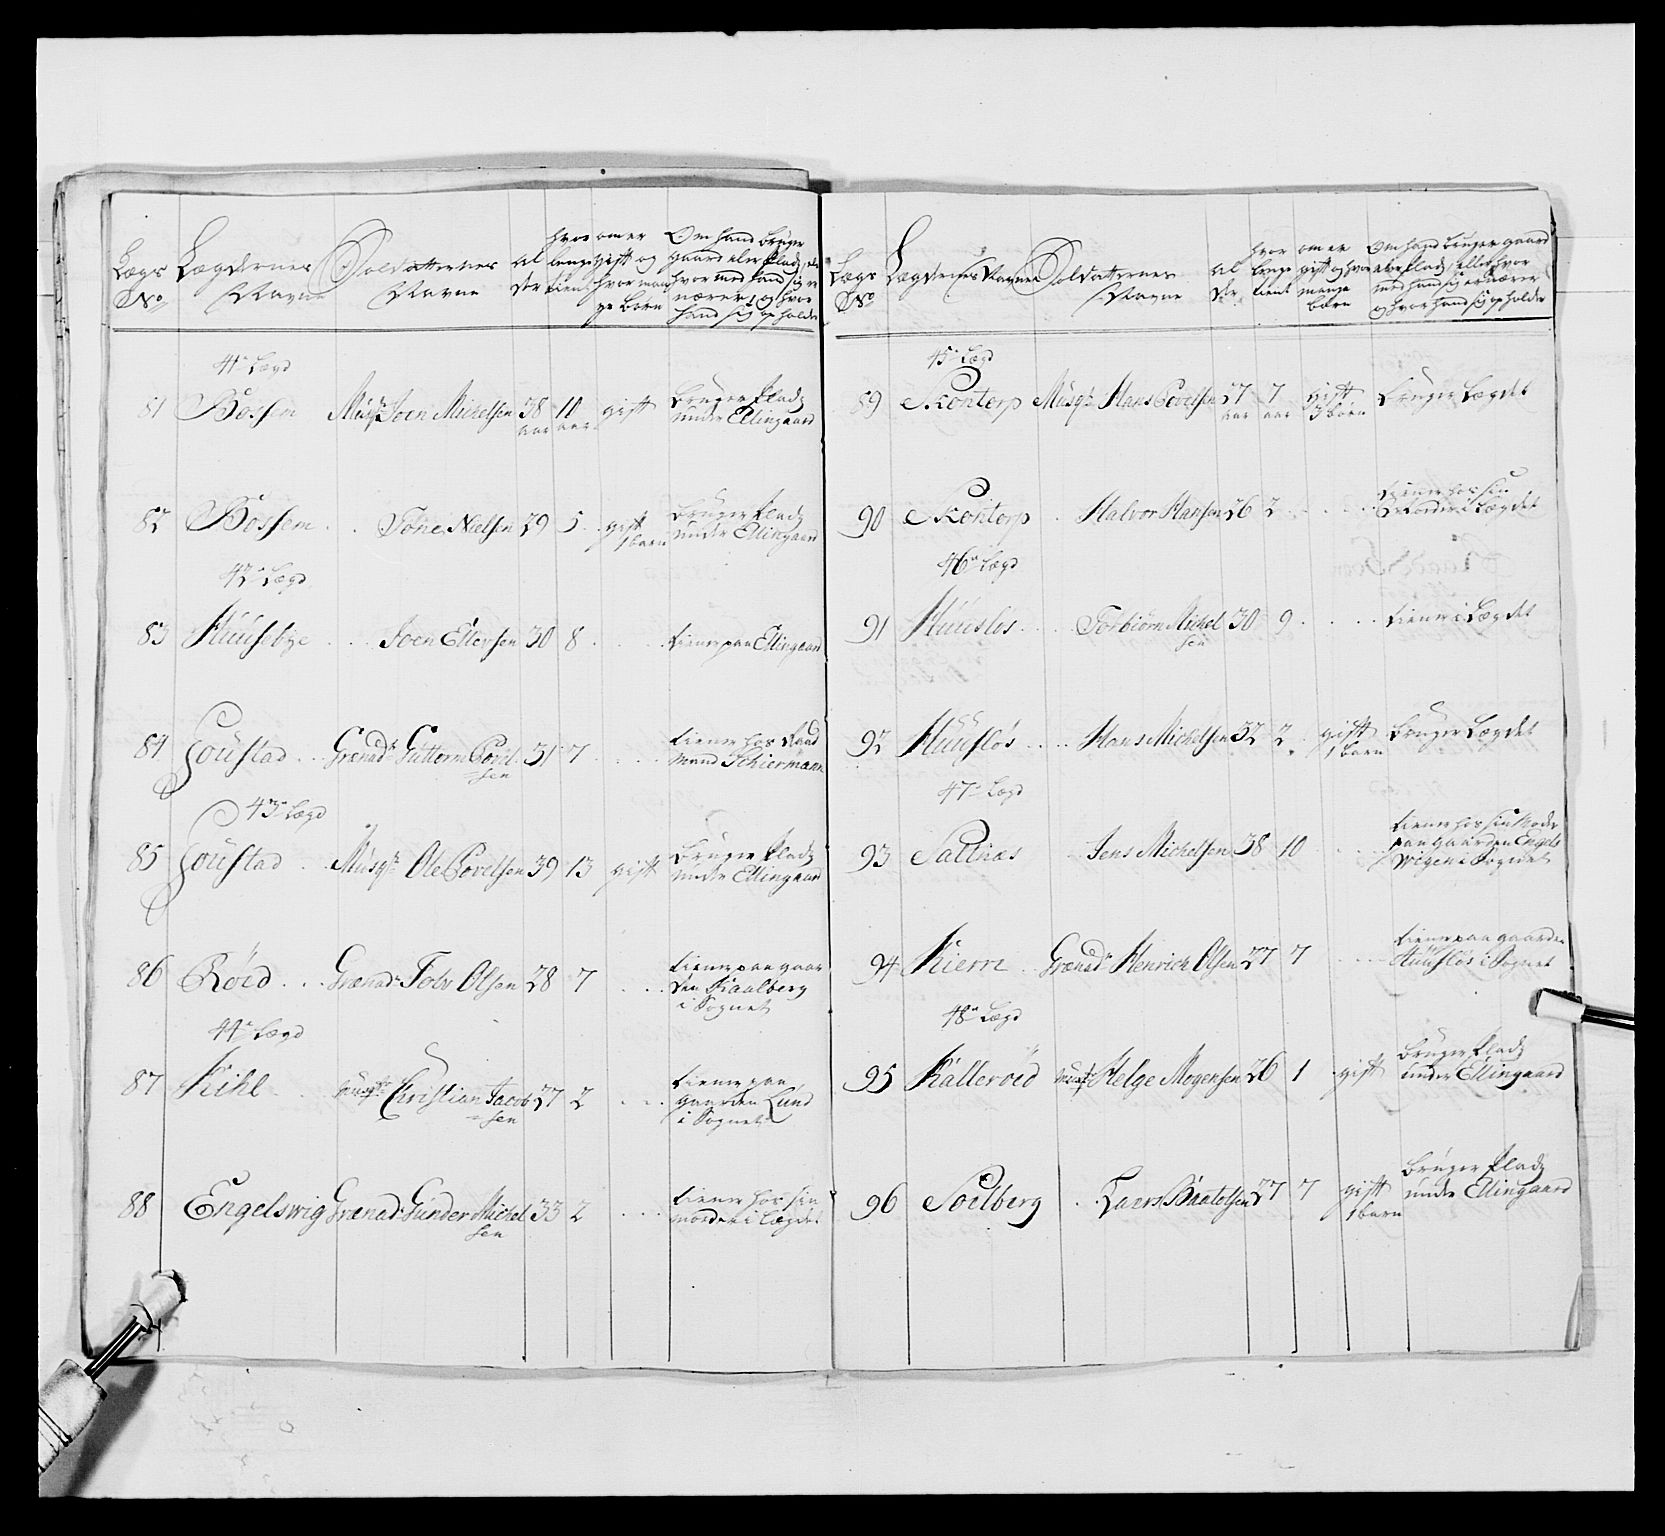 Lægs No
Lægdernes Navne
Soldatternes Navne
Al der
hvor lenge tient
om er gift og hvor man ge børn
Om hand bruger gaard eler Plads, eller hvor med hand sig er nærer, og hvor hand sig op holder
41de Lægd
81 Bossem Musqr Joen Michelsen 38 aar 10 aar gift bruger Plads under Ellingaard
82 Bossem Tøne Nielsen 29 5 gift 1 barn bruger Plads under Ellingaard
42de Lægd
83 Huusebye Joen Ellevsen 30 8 tiener paa Ellingaard
84 Joustad Grenadr Guttorm Povel=sen 31 7 tiener hos Raad mand Schiermann
43de Lægd
85 Joustad Musqr Ole Povelsen 39 13 gift bruger Plads under Ellingaard
86 Røed Grenadr Tolv Olsen 28 7 tiener paa gaar den Kaalberg i Sognet
44de Lægd
87 Kihl Musqr Christian Jacob=sen 27 2 tiener paa gaarden Lund i Sognet
88 Engelswig Grenadr Gunder Michel sen 33 2 tiener hos sin moder i Lægdet
Lægs No
Lægdernes Navne
Soldatternes Navne
Al der
hvor lenge tient
om er gift og hvor mange børn
Om hand bruger gaard eler Plads, eller hvor med hand sig ernærer og hvor hand sig opholder
45de Lægd
89 Skontorp Musqr Hans Povelsen 37 aar 7 aar gift 3 børn bruger Lægdet
90 Skontorp Halvor Hansen 26 2 tiener hos sin i Lægdet
46de Lægd
91 Huusløs Torbiørn Michel sen 30 9 tiener i Lægdet
92 Huusløs Hans Michelsen 32 2 gift 1 barn bruger Lægdet
47de Lægd
93 Saltnæs Jens Michelsen 38 10 tiener hos sin Moder paa gaarden Engels wigen i Sognet
94 Kiern Grenadr Henrich Olsen 27 7 tiener paa gaarden Huusløs i Sognet
48de Lægd
95 Kallerøed Musqr Helge Mogensen 26 1 gift bruger Plads under Ellingaard
96 Soelberg Laers 27 7 gift 1 barn bruger Plads under Ellingaard